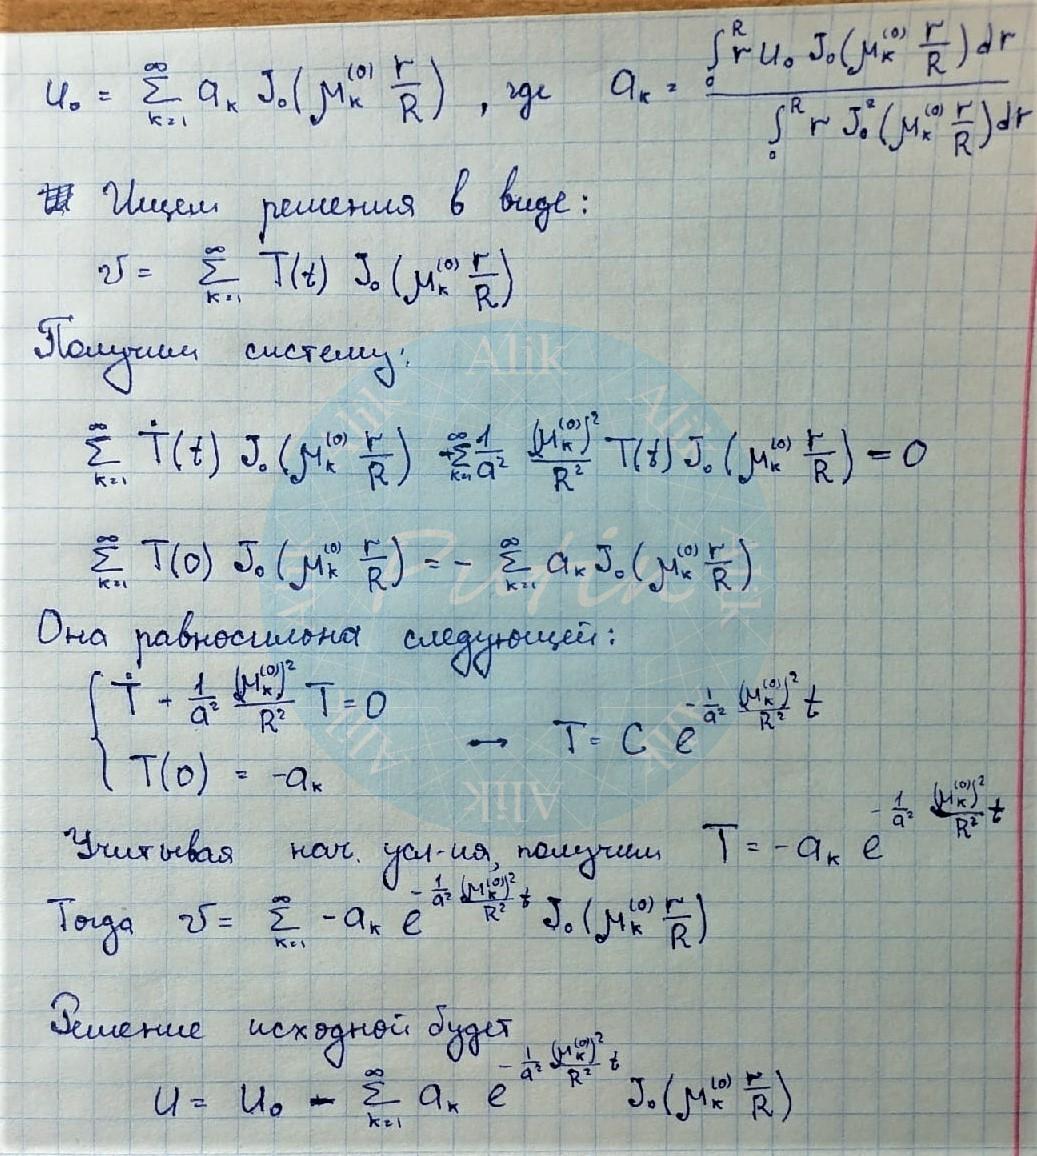 u₀ = ∑_{k=1}^{∞} a_k J₀(μ_k^{(0)} r/R), где a_k = ∫₀^R r u₀ J₀(μ_k^{(0)} r/R) dr / ∫₀^R r J₀²(μ_k^{(0)} r/R) dr
Ищем решения в виде:
v = ∑_{k=1}^{∞} T(t) J₀(μ_k^{(0)} r/R)
Получим систему:
∑_{k=1}^{∞} Ṫ(t) J₀(μ_k^{(0)} r/R) + ∑_{k=1}^{∞} 1/a² (μ_k^{(0)})²/R² T(t) J₀(μ_k^{(0)} r/R) = 0
∑_{k=1}^{∞} T(0) J₀(μ_k^{(0)} r/R) = - ∑_{k=1}^{∞} a_k J₀(μ_k^{(0)} r/R)
Она равносильна следующей:
{ Ṫ + 1/a² (μ_k^{(0)})²/R² T = 0
T(0) = -a_k → T = C e^{-1/a² (μ_k^{(0)})²/R² t}
Учитывая нач. усл-ия, получим T = -a_k e^{-1/a² (μ_k^{(0)})²/R² t}
Тогда v = ∑_{k=1}^{∞} -a_k e^{-1/a² (μ_k^{(0)})²/R² t} J₀(μ_k^{(0)} r/R)
Решение исходной будет
u = u₀ - ∑_{k=1}^{∞} a_k e^{-1/a² (μ_k^{(0)})²/R² t} J₀(μ_k^{(0)} r/R)
Alik
Alik
Alik
Alik
Alik
Alik
Alik
Alik
Putin